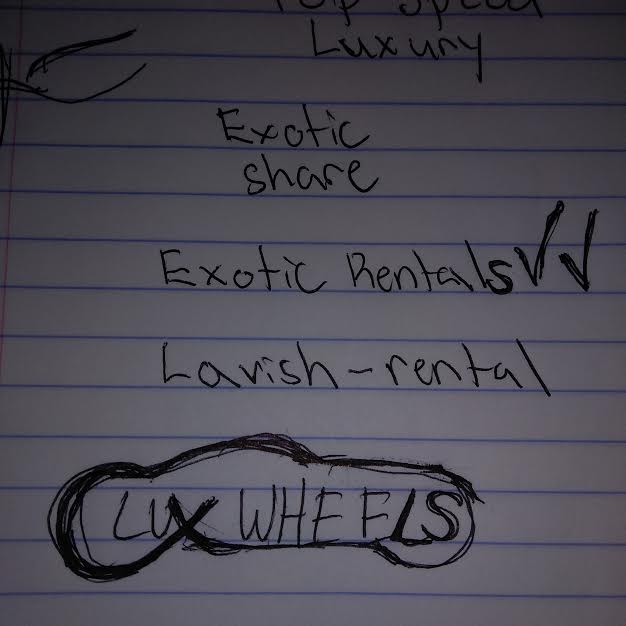 Top Speed
Luxury
Exotic
share
Exotic Rentals
Lavish-rental
LUX WHEELS